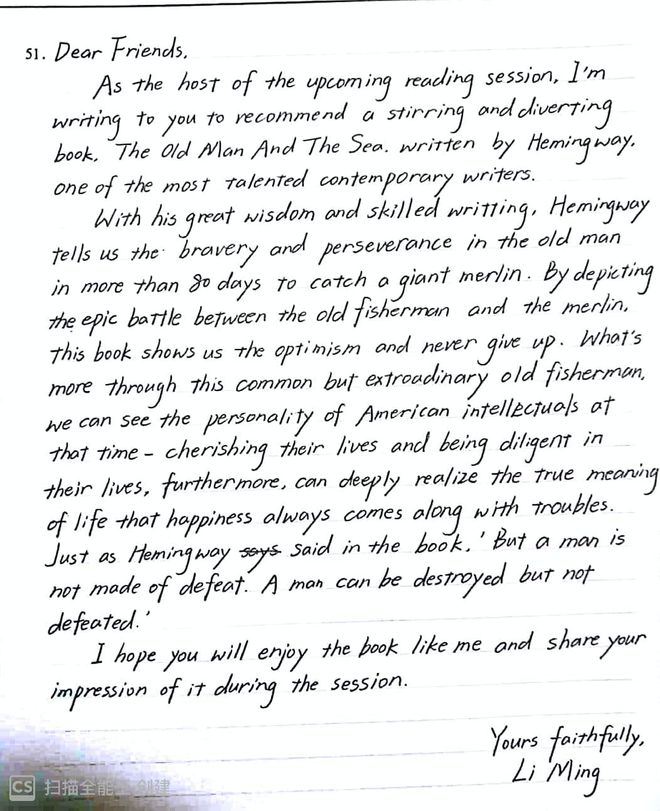 51. Dear Friends,
As the host of the upcoming reading session, I'm
writing to you to recommend a stirring and diverting
book, The Old Man And The Sea. written by Hemingway,
one of the most talented contemporary writers.
With his great wisdom and skilled writting, Hemingway
tells us the bravery and perseverance in the old man
in more than 80 days to catch a giant merlin. By depicting
the epic battle between the old fisherman and the merlin,
this book shows us the optimism and never give up. What's
more through this common but extroadinary old fisherman,
we can see the personality of American intellectuals at
that time - cherishing their lives and being diligent in
their lives, furthermore, can deeply realize the true meaning
of life that happiness always comes along with troubles.
Just as Hemingway says said in the book, ' But a man is
not made of defeat. A man can be destroyed but not
defeated.'
I hope you will enjoy the book like me and share your
impression of it during the session.
Yours faithfully,
Li Ming
CS 扫描全能王 创建